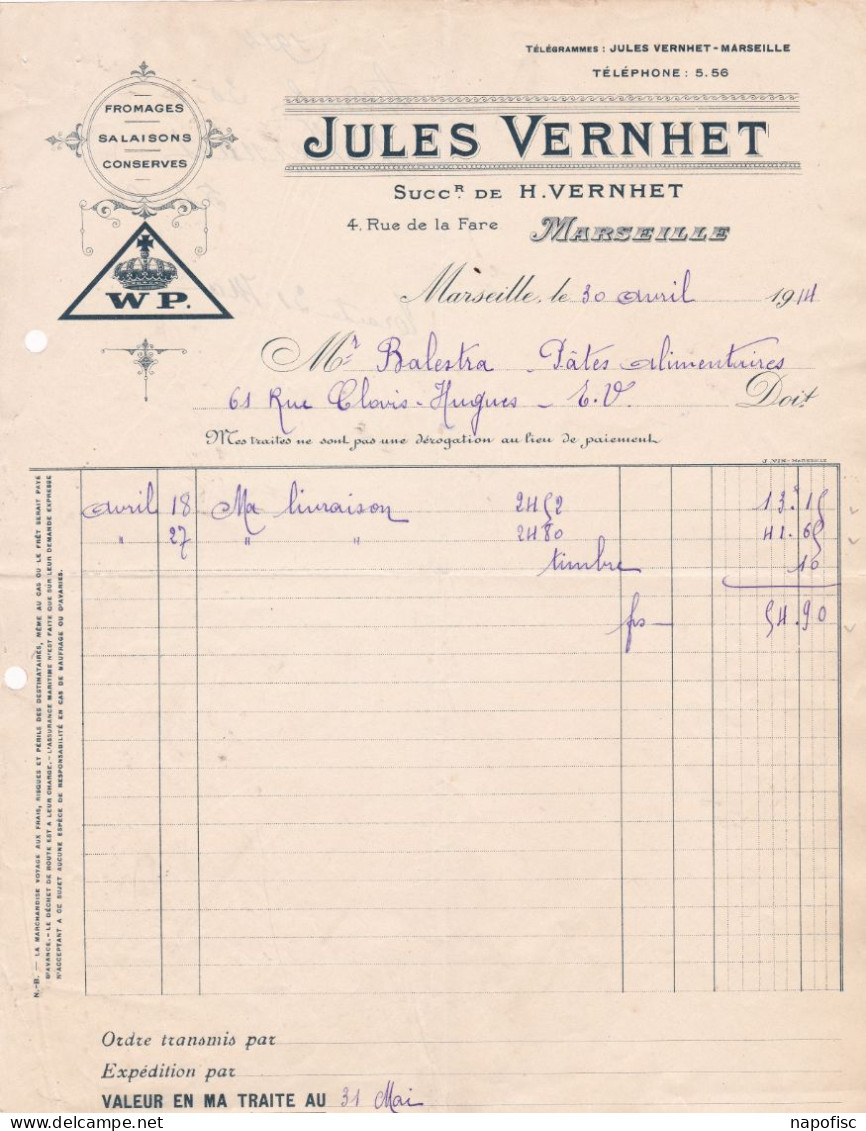 TÉLÉGRAMMES : JULES VERNHET - MARSEILLE
TÉLÉPHONE : 5.56
FROMAGES
SALAISONS
CONSERVES
JULES VERNHET
SUCCR. DE H. VERNHET
4, Rue de la Fare MARSEILLE
W P.
Marseille, le 30 avril 1914
Mr Balestra Pâtes alimentaires
61 Rue Clovis-Hugues - E.V. Doit
Mes traites ne sont pas une dérogation au lieu de paiement
J. VIN - MARSEILLE
avril 18 Ma livraison 2452 13.15
" 27 " " 2480 41.65
timbre 10
frs — 54.90
N.-B. — LA MARCHANDISE VOYAGE AUX FRAIS, RISQUES ET PÉRILS DES DESTINATAIRES, MÊME AU CAS OU LE FRÊT SERAIT PAYÉ
D'AVANCE. - LE DÉCHET DE ROUTE EST A LEUR CHARGE. - L'ASSURANCE MARITIME N'EST FAITE QUE SUR LEUR DEMANDE EXPRESSE
N'ACCEPTANT A CE SUJET AUCUNE ESPÈCE DE RESPONSABILITÉ EN CAS DE NAUFRAGE OU D'AVARIES.
Ordre transmis par
Expédition par
VALEUR EN MA TRAITE AU 31 Mai
napofisc